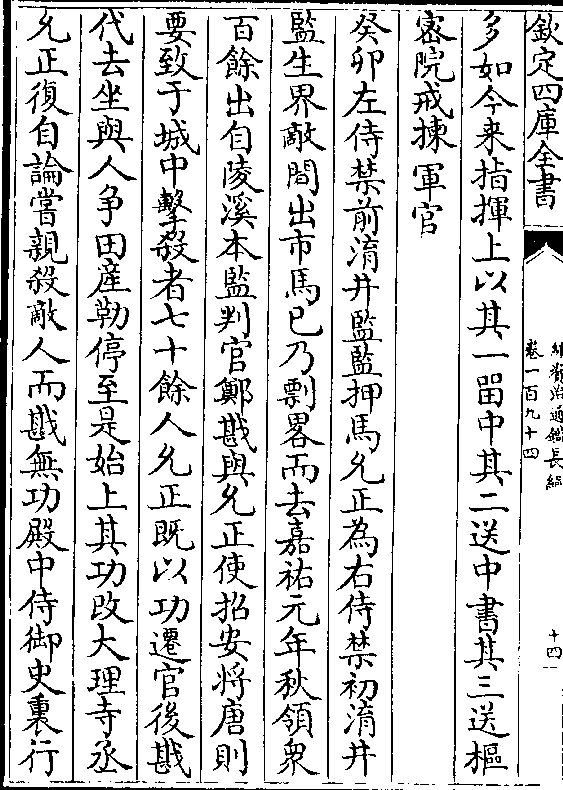 欽定四庫全書
續資治通鑑長編
卷一百九十四
十四
多如今来指揮上以其一㽞中其二送中書其三送樞
宻院戒揀軍官
癸卯左侍禁前淯井監監押馬允正為右侍禁初淯井
監生界敵間出市馬已乃剽畧而去嘉祐元年秋領衆
百餘出自陵溪本監判官鄭戡與允正使招安將唐則
要致于城中擊殺者七十餘人允正既以功遷官後戡
代去坐與人争田産勒停至是始上其功改大理寺丞
允正復自論嘗親殺敵人而戡無功殿中侍御史裏行